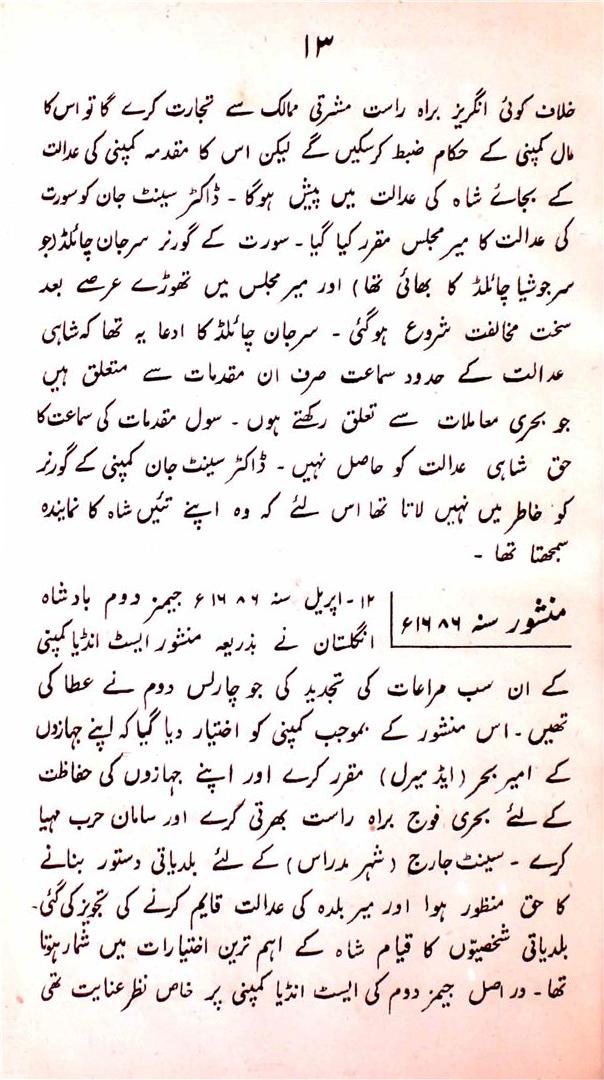 ۱۳
خلاف کوئی انگریز براہ راست مشرقی ممالک سے تجارت کرے گا تو اس کا
مال کمپنی کے حکام ضبط کرسکیں گے لیکن اس کا مقدمہ کمپنی کی عدالت
کے بجائے شاہ کی عدالت میں پیش ہوگا ۔ ڈاکٹر سینٹ جان کو سورت
کی عدالت کا میر مجلس مقرر کیا گیا ۔ سورت کے گورنر سرجان چائلڈ (جو
سرجوشیا چائلڈ کا بھائی تھا) اور میر مجلس میں تھوڑے عرصے بعد
سخت مخالفت شروع ہوگئی ۔ سرجان چائلڈ کا ادعا یہ تھا کہ شاہی
عدالت کے حدود سماعت صرف ان مقدمات سے متعلق ہیں
جو بحری معاملات سے تعلق رکھتے ہوں ۔ سول مقدمات کی سماعت کا
حق شاہی عدالت کو حاصل نہیں ۔ ڈاکٹر سینٹ جان کمپنی کے گورنر
کو خاطر میں نہیں لاتا تھا اس لئے کہ وہ اپنے تئیں شاہ کا نمایندہ
سمجھتا تھا ۔
منشور سنہ ۱۶۸۶ء
۱۲ ۔ اپریل سنہ ۱۶۸۶ء جیمز دوم بادشاہ
انگلستان نے بذریعہ منشور ایسٹ انڈیا کمپنی
کے ان سب مراعات کی تجدید کی جو چارلس دوم نے عطا کی
تھیں ۔ اس منشور کے بموجب کمپنی کو اختیار دیا گیا کہ اپنے جہازوں
کے امیر بحر (ایڈمیرل) مقرر کرے اور اپنے جہازوں کی حفاظت
کے لئے بحری فوج براہ راست بھرتی کرے اور سامان حرب مہیا
کرے ۔ سینٹ جارج (شہر مدراس) کے لئے بلدیاتی دستور بنانے
کا حق منظور ہوا اور میر بلدہ کی عدالت قایم کرنے کی تجویز کی گئی۔
بلدیاتی شخصیتوں کا قیام شاہ کے اہم ترین اختیارات میں شمار ہوتا
تھا ۔ دراصل جیمز دوم کی ایسٹ انڈیا کمپنی پر خاص نظر عنایت تھی